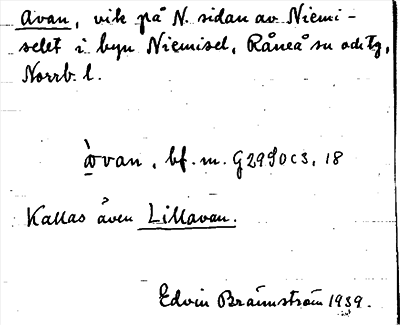 Avan, vik på N. sidan av Niemi-
selet i byn Niemisel, Råneå sn och tg,
Norrb. l.
àvan, bf. m. G2990c3, 18
Kallas även Lillavan.
Edvin Brännström 1939.